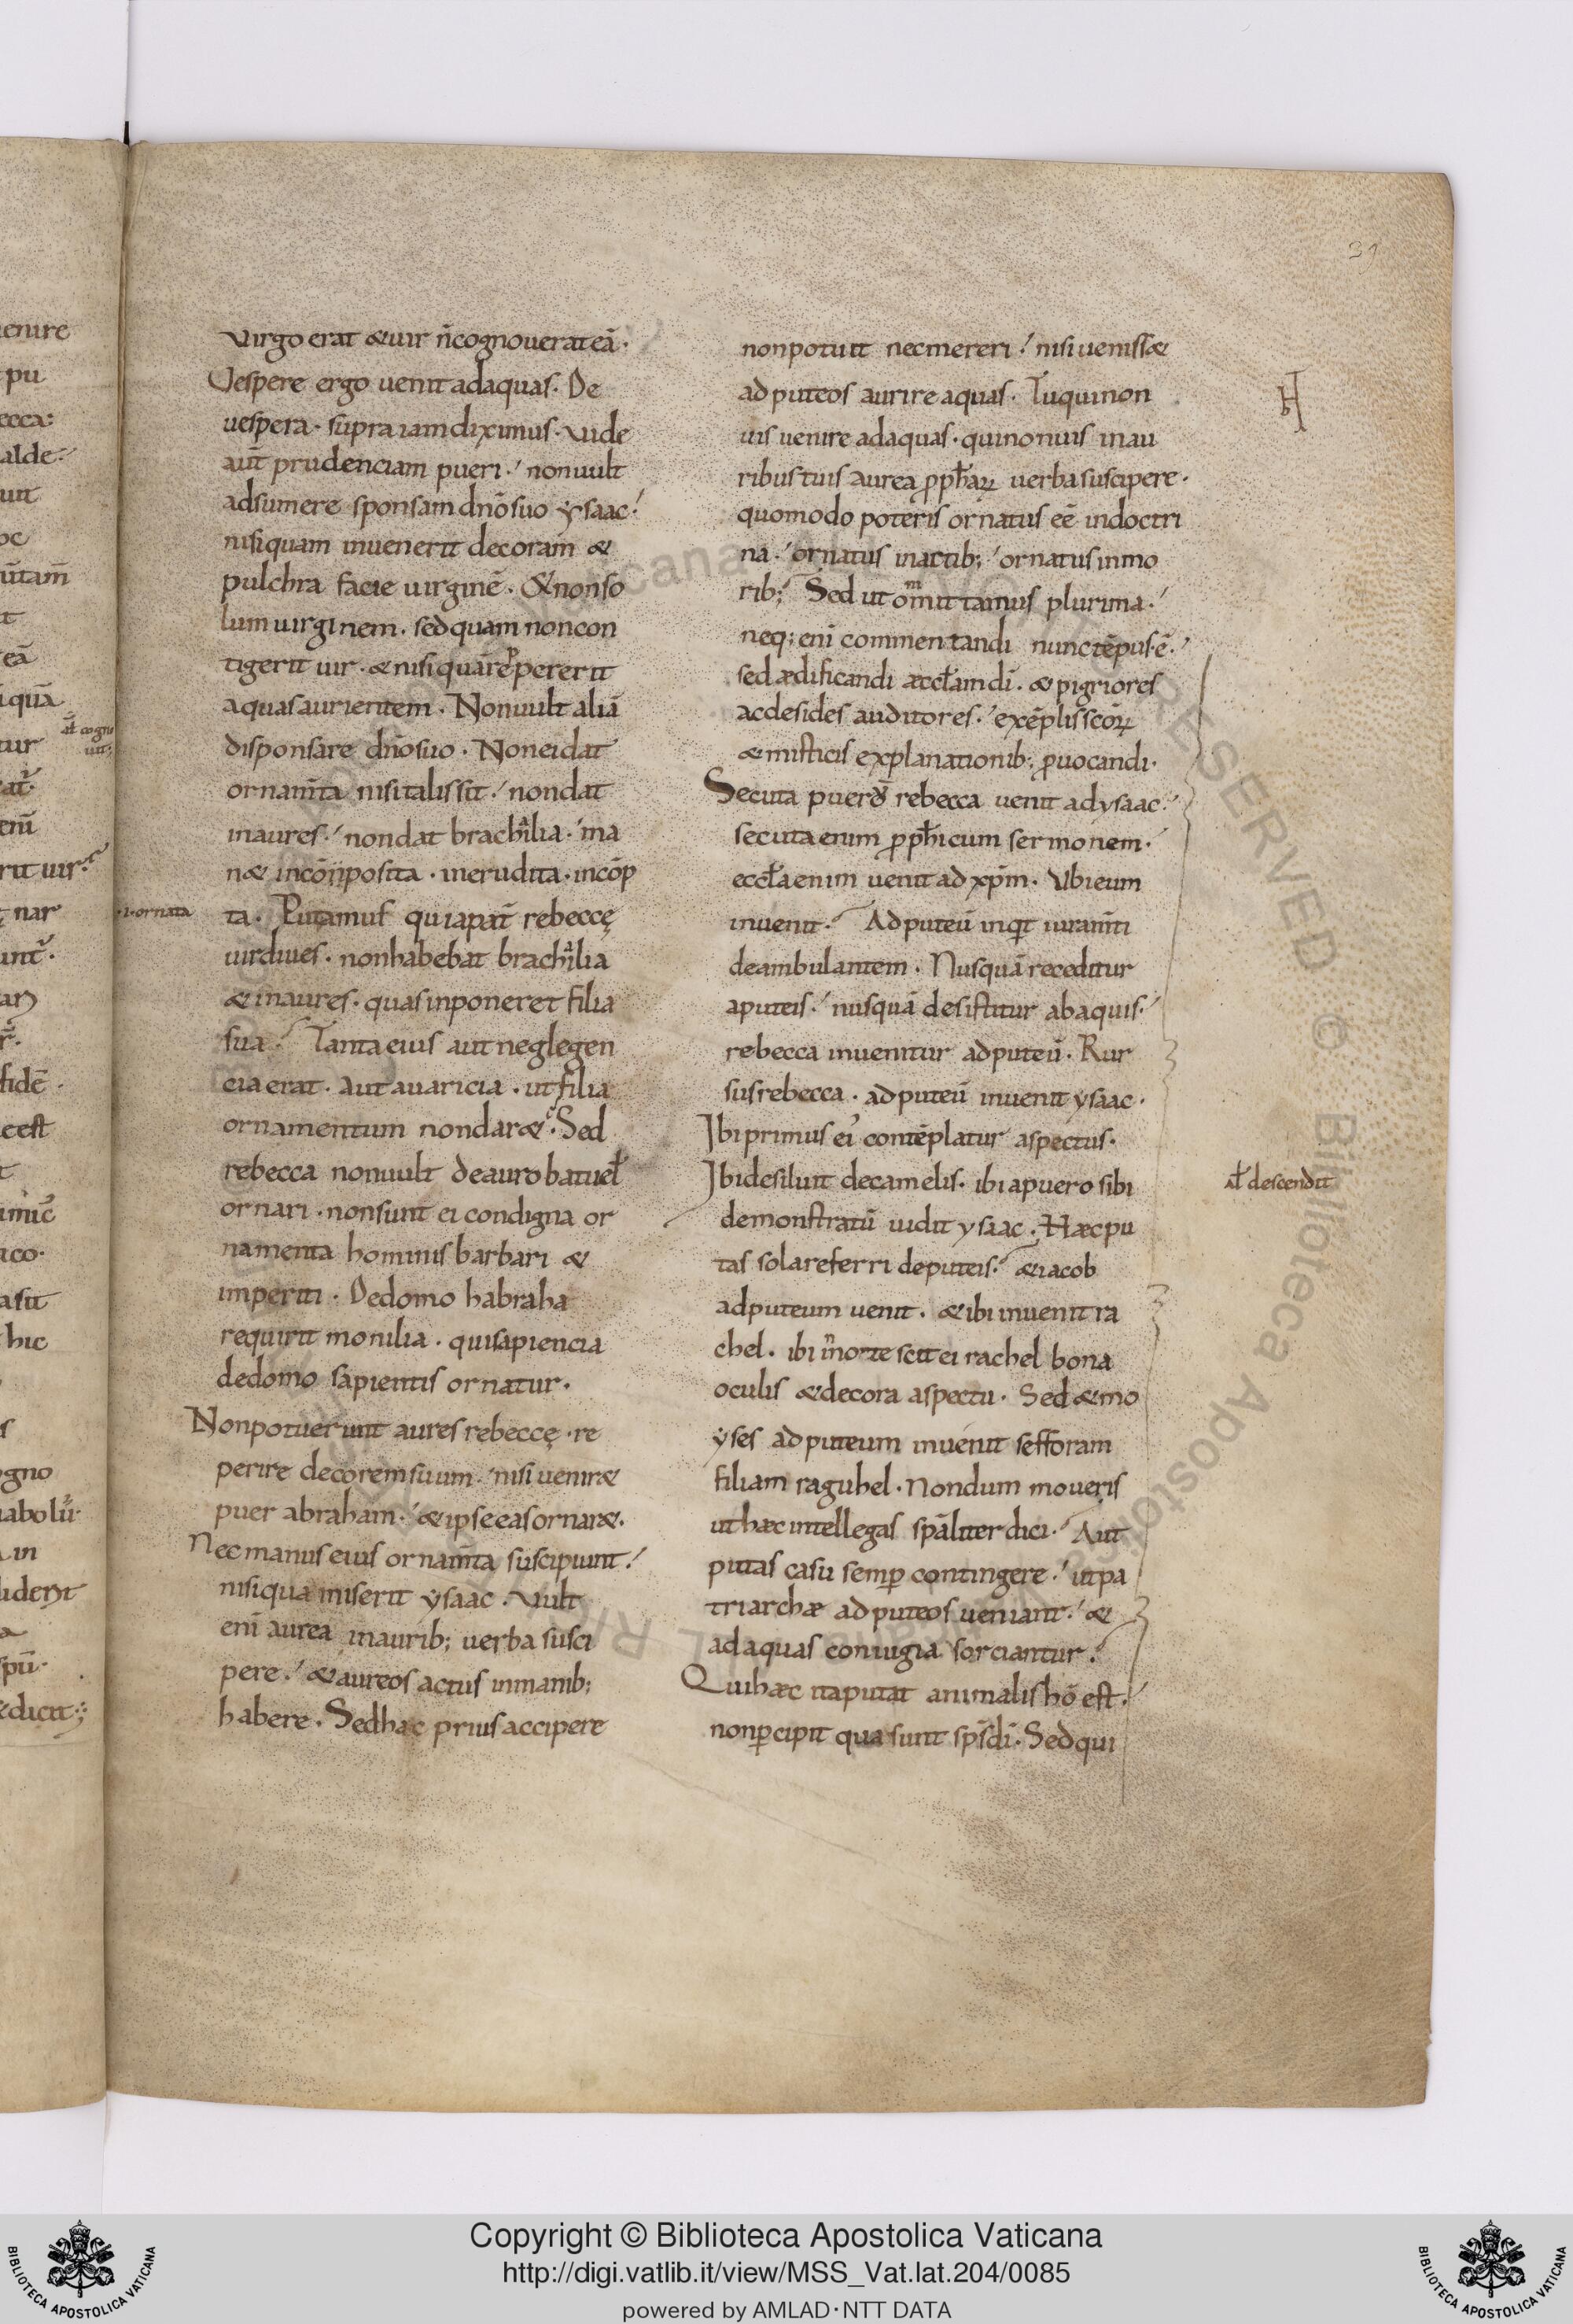 39
virgo erat &uir ñcognouerat eā·
Vespere ergo uenit adaquas· De
uespera· supra iam diximus· vide
aut̄ prudenciam pueri·/ nonuult
adsumere sponsam dnō suo ysaac·/
nisi quam inuenerit decoram &
pulchra facie uirginē· & non so
lum uirginem· sed quam non con
tigerit uir· & nisi quā reppererit
aquas aurientem· Non uult aliā
disponsare dnō suo· Non ei dat
ornam̄ta nisi talis sit·/ non dat
inaures·/ non dat brachilia·/ ma
n& incōnposita· inerudita· incōp
·i·ornata
ta· Putamus quia pat̄ rebeccę
uir diues· non habebat brachilia
& inaures· quas inponeret filia
sua· Tanta eius aut neglegen
cia erat· aut auaricia· ut filia
ornamentum non dar&· Sed
rebecca non uult de auro batuel̄
ornari· non sunt ei condigna or
namenta hominis barbari &
imperiti· De domo habraha
requirit monilia· qui sapiencia
de domo sapientis ornatur·
Non potuerunt aures rebeccę· re
perire decorem suum·/ nisi uenir&
puer abraham·/ & ipse eas ornar&·
Nec manus eius ornam̄ta suscipiunt·/
nisi qua miserit ysaac· vult
enī aurea in aurib; uerba susci
pere·/ & aureos actus in manib;
habere· Sed hac prius accipere
non potuit nec mereri·/ nisi uenis&
ad puteos aurire aquas· Tu qui non
uis uenire ad aquas· qui non uis in au
ribus tuis aurea pph̄arꝝ uerba suscipere·
quomodo poteris ornatus eē in doctri
na·/ ornatus in actib;/ ornatus in mo
rib; Sed ut omittamus plurima·/
neq; enī commentandi nunc tēpus ē·/
sed ædificandi æccl̄am dī· & pigriores
ac desides auditores·/ exēplis scōrꝝ
& misticis explanationib; puocandi·
Secuta puerū rebecca uenit ad ysaac·/
secuta enim pph̄icum sermonem·
eccl̄a enim uenit ad xp̄m· Vbi eum
inuenit· Ad puteū inqt iuram̄ti
deambulantem· Nusquā receditur
a puteis·/ nusquā desistitur ab aquis·/
rebecca inuenitur ad puteū· Rur
sus rebecca· ad puteū inuenit ysaac·
Ibi primus ei' contēplatur aspectus·
Ibi desiluit de camelis· ibi a puero sibi
al̄ descendit
demonstratū uidit ysaac· Hæc pu
tas sola referri de puteis· & iacob
ad puteum uenit· & ibi inuenit ra
chel· ibi innotescit ei rachel bona
oculis & decora aspectu· Sed & mo
yses ad puteum inuenit sefforam
filiam raguhel· Nondum moueris
ut hæc intellegas spāliter dici· Aut
putas casu semp contingere·/ ut pa
triarchæ ad puteos ueniant·/ &
ad aquas coniugia sorciantur·/
Qui hæc ita putat animalis hō est·/
non pcipit qua sunt sp̄s dī· Sed qui
Copyright © Biblioteca Apostolica Vaticana
http://digi.vatlib.it/view/MSS_Vat.lat.204/0085
powered by AMLAD·NTT DATA